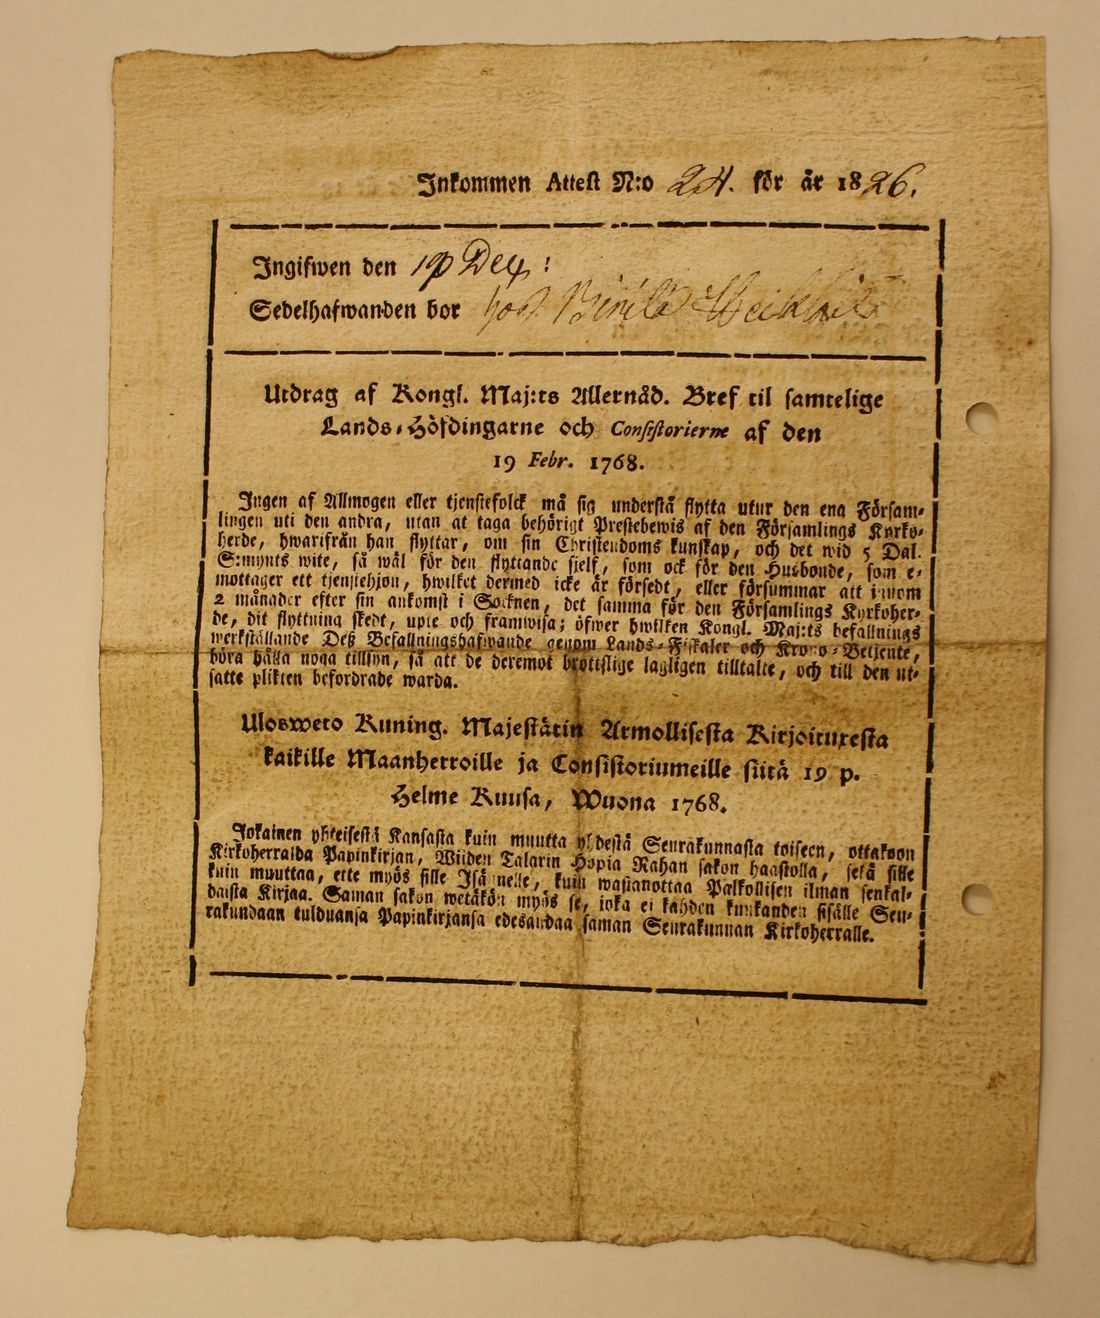 Inkommen Attest N:o 24. för år 1826.
Ingifwen den 19 Dec:
Sedelhafwanden bor hos
Utdrag af Kongl. Maj:ts Allernåd. Bref til samtelige
Lands-Höfdingarne och Consistorierne af den
19 Febr. 1768.
Ingen af Allmogen eller tjenstefolck må sig understå flytta utur den ena Församlingen
lingen uti den andra, utan at taga behörigt Prestebewis af den Församlings Kyrko-
herde, hwarifrån han flyttar, om sin Christendoms kunskap, och det wid 5 Dal.
S:mynts wite, så wäl för den flyttande sjelf, som ock för den Husbonde, som e-
mottager ett tjenstehjon, hwilket dermed icke är försedt, eller försummar att innom
2 månader efter sin ankomst i Socknen, det samma för den Församlings Kyrkoher-
de, dit flyttning skedt, upte och framwisa; öfwer hwilken Kongl. Maj:ts befallnings
werkställande Deß Befallningshafwande genom Lands-Fiskaler och Krono-Betjente,
böra hålla noga tillsyn, så att de deremot brottslige lagligen tilltalte, och till den ut-
satte plikten befordrade warda.
Ulosweto Kuning. Majestätin Armollisesta Kirjoituxesta
kaikille Maanherroille ja Consistoriumeille siitä 19 p.
Helme Kuusa, Wuona 1768.
Jokainen yhteisestä Kansasta kuin muutta yhdestä Seurakunnasta toiseen, ottakoon
Kirkoherralda Papinkirjan, Wiiden Talarin Hopia Rahan sakon haastolla, sekä sille
kuin muuttaa, ette myös sille Isännelle, kuin wastanottaa Palkollisen ilman senkal-
daista Kirjaa. Saman sakon wetäkön myös se, joka ei kahden kuukanden sisälle Seu-
rakundaan tulduansa Papinkirjansa edesandaa saman Seurakunnan Kirkoherralle.